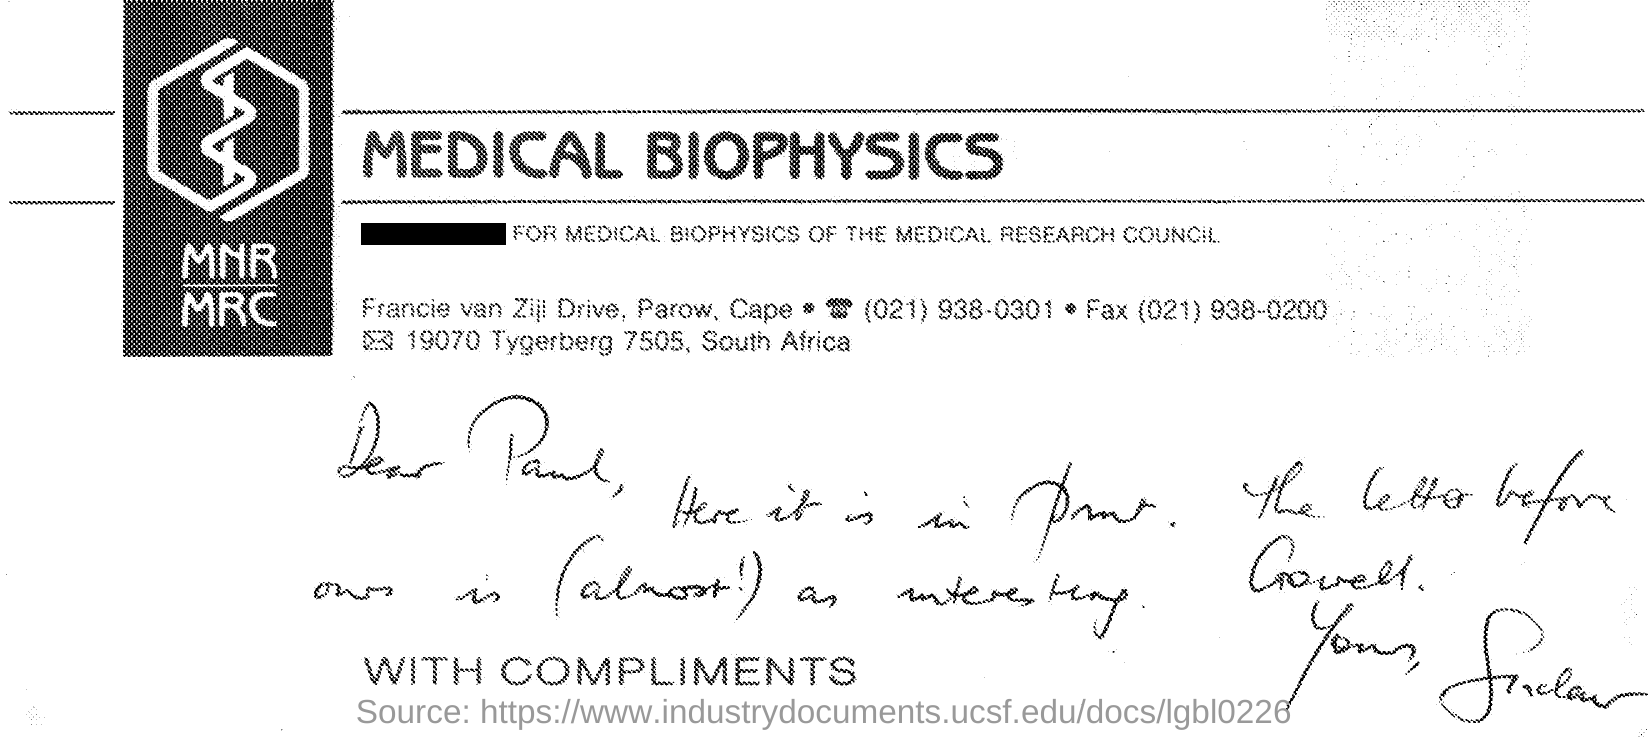 MEDICAL BIOPHYSICS
MNR
MRC
FOR MEDICAL BIOPHYSICS OF THE MEDICAL RESEARCH COUNCIL
Francie van Zijl Drive, Parow, Cape • ☎ (021) 938-0301 • Fax (021) 938-0200
✉ 19070 Tygerberg 7505, South Africa
Dear Paul,
Here it is in print. The letter before
ours is (almost!) as interesting. Gowell.
Yours, Sinclair
WITH COMPLIMENTS
Source: https://www.industrydocuments.ucsf.edu/docs/lgbl0226